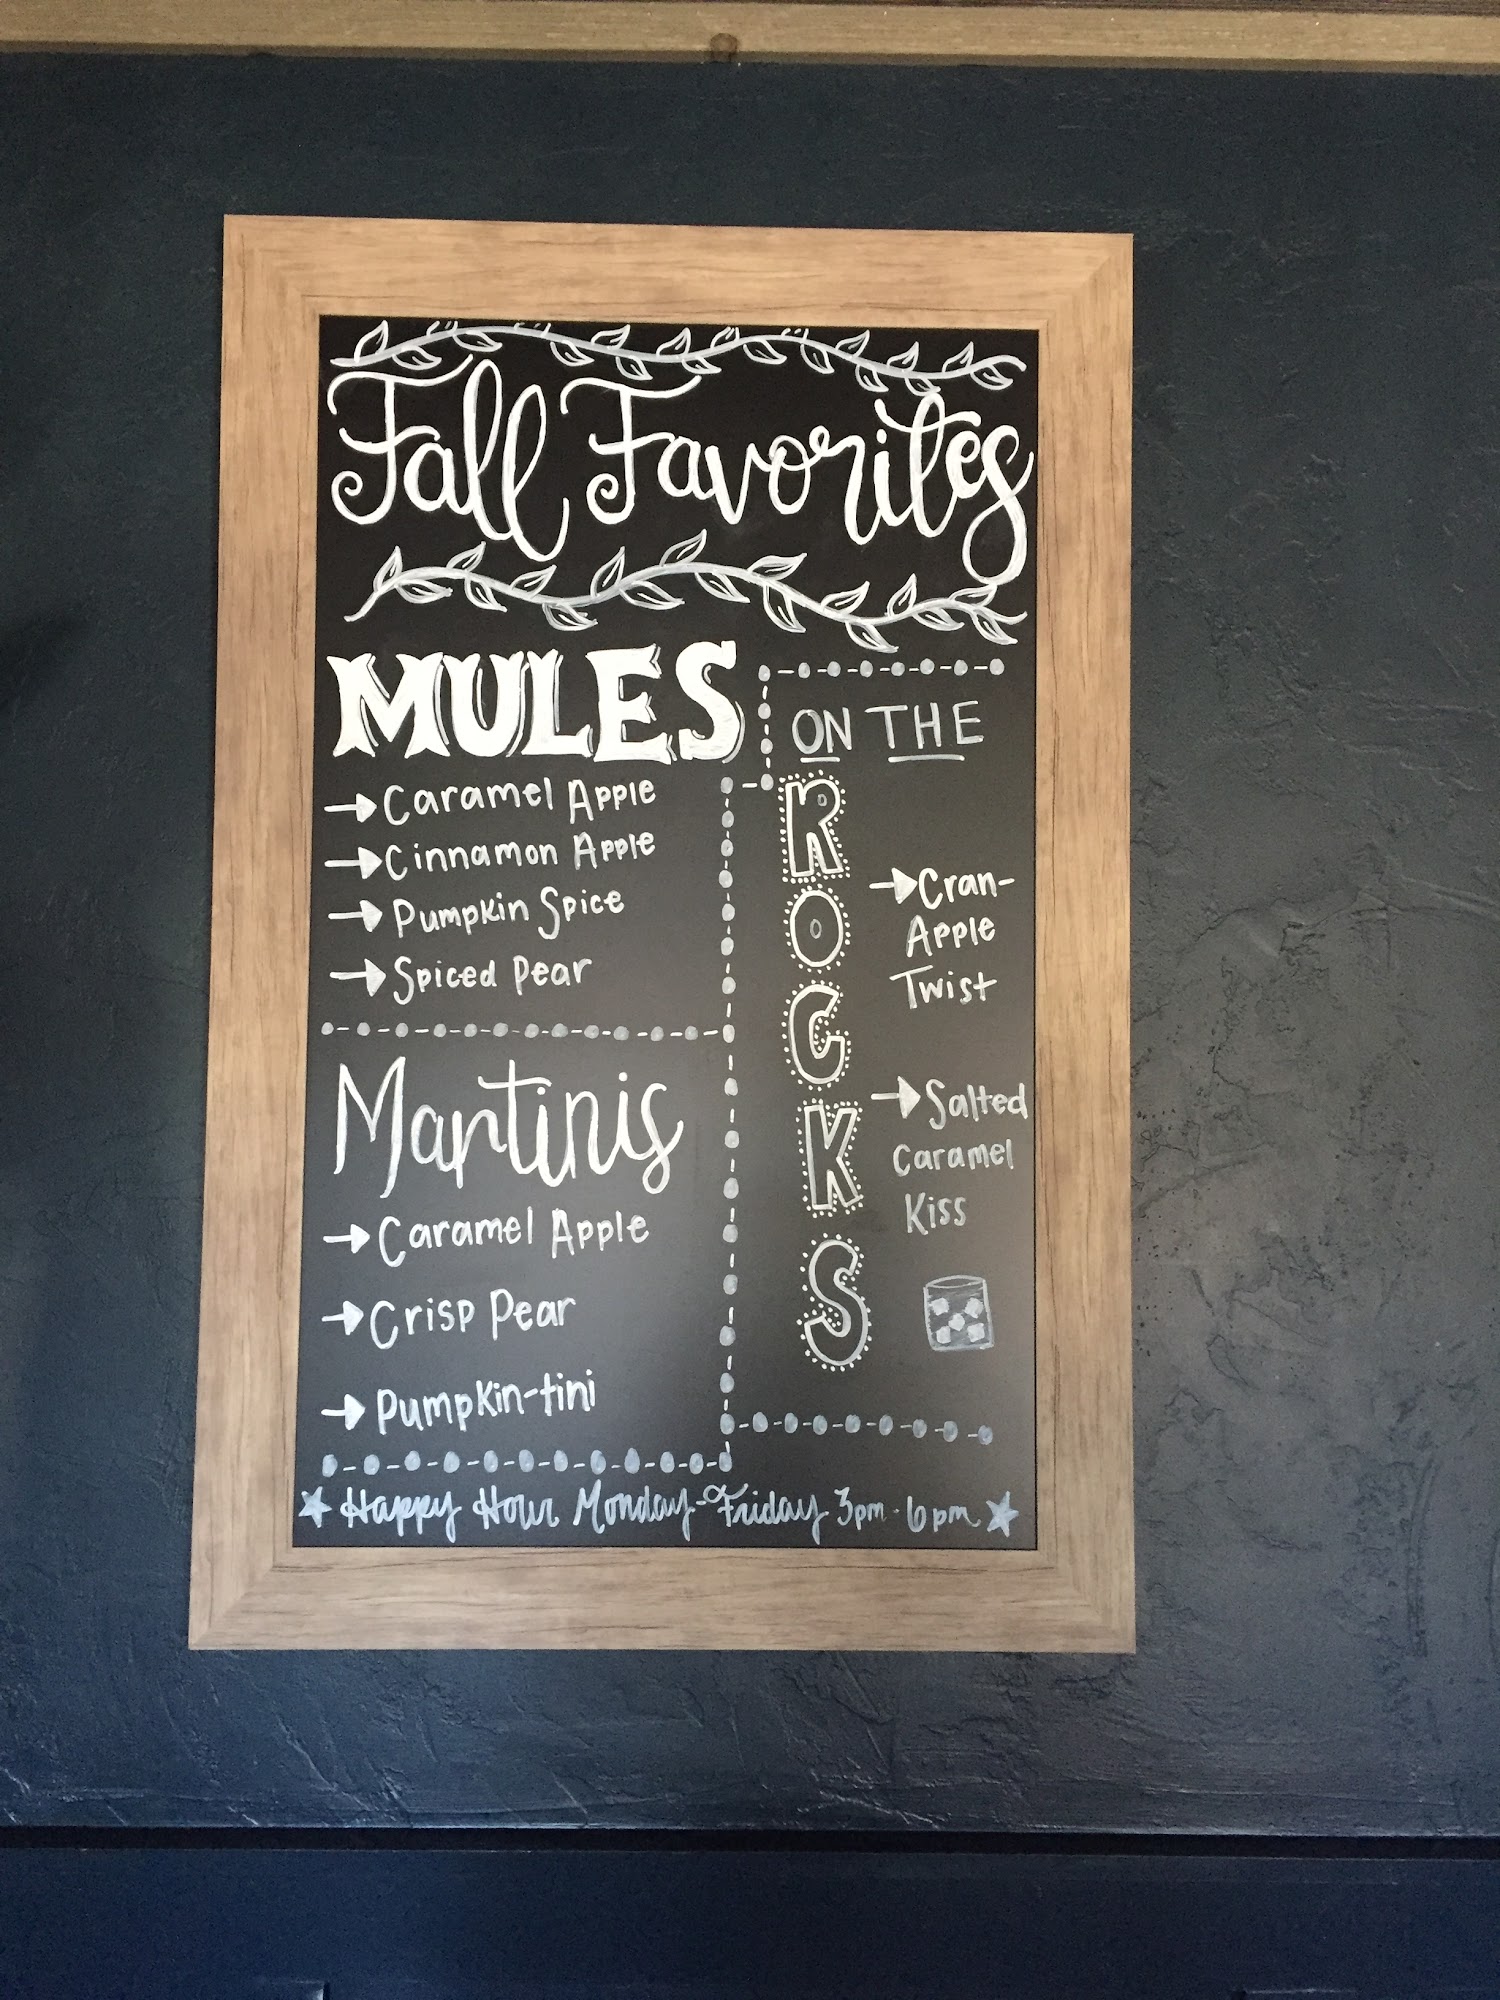 Fall Favorites
MULES
Caramel Apple
Cinnamon Apple
Pumpkin Spice
Spiced Pear
Martinis
Caramel Apple
Crisp Pear
Pumpkin-tini
ON THE
ROCKS
Cran-
Apple
Twist
Salted
Caramel
Kiss
Happy Hour Monday-Friday 3pm - 6pm